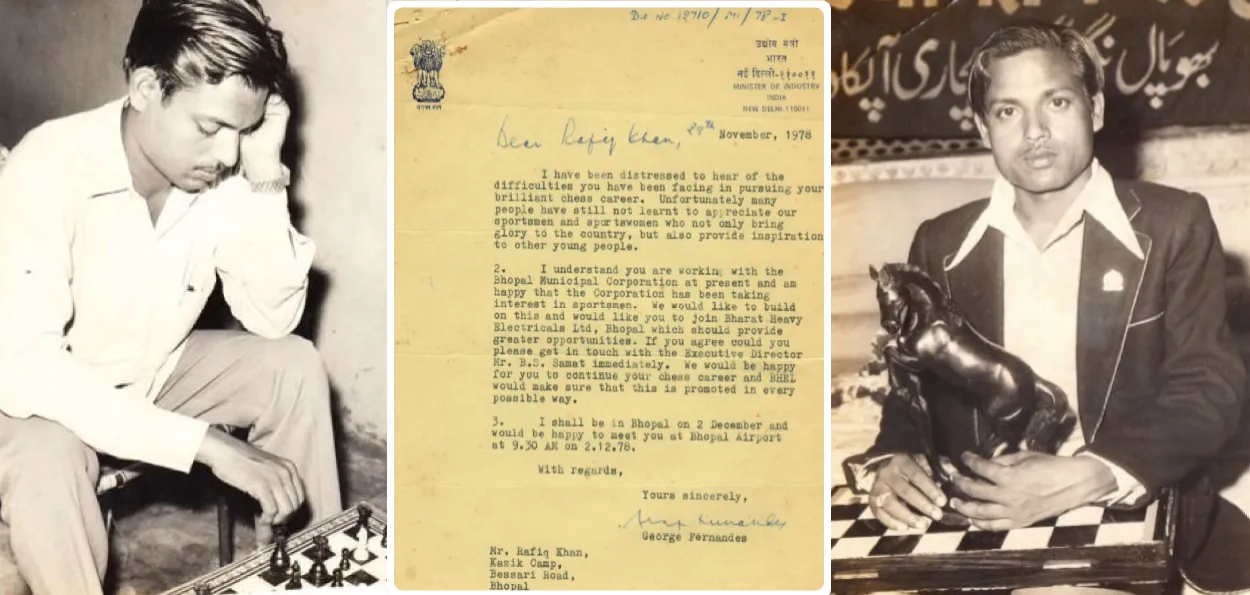 D.O No.12710/MI/78-I
उद्योग मंत्री
भारत
नई दिल्ली-११००११
MINISTER OF INDUSTRY
INDIA
NEW DELHI-110011
Dear Rafiq Khan, 28th November, 1978
I have been distressed to hear of the
difficulties you have been facing in pursuing your
brilliant chess career. Unfortunately many
people have still not learnt to appreciate our
sportsmen and sportswomen who not only bring
glory to the country, but also provide inspiration
to other young people.
2. I understand you are working with the
Bhopal Municipal Corporation at present and am
happy that the Corporation has been taking
interest in sportsmen. We would like to build
on this and would like you to join Bharat Heavy
Electricals Ltd, Bhopal which should provide
greater opportunities. If you agree could you
please get in touch with the Executive Director
Mr. B.S. Samat immediately. We would be happy
for you to continue your chess career and BHEL
would make sure that this is promoted in every
possible way.
3. I shall be in Bhopal on 2 December and
would be happy to meet you at Bhopal Airport
at 9.30 AM on 2.12.78.
With regards,
Yours sincerely,
George Fernandes
Mr. Rafiq Khan,
Kazik Camp,
Bessari Road,
Bhopal
بھوپال